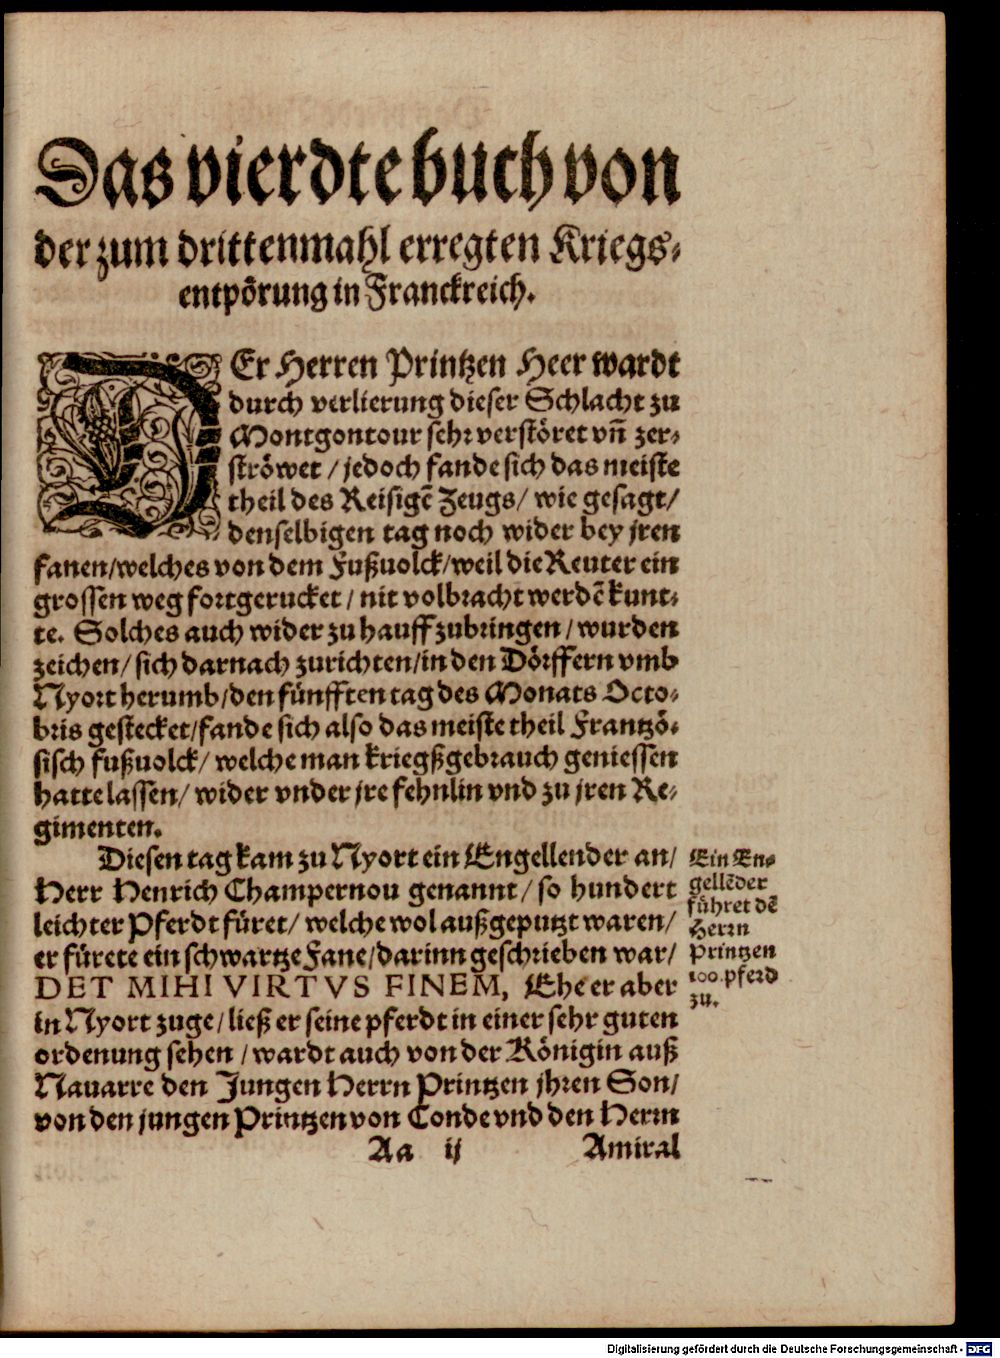 Das vierdte buch von
der zum drittenmahl erregten Kriegs-
entpörung in Franckreich.
DEr Herren Printzen Heer wardt
durch verlierung dieser Schlacht zu
Montgontour sehr verstöret vn̄ zer-
ströwet / jedoch fande sich das meiste
theil des Reisigē Zeugs / wie gesagt /
denselbigen tag noch wider bey jren
fanen / welches von dem Fußuolck / weil die Reuter ein
grossen weg fortgerucket / nit volbracht werdē kunt-
te. Solches auch wider zu hauff zubringen / wurden
zeichen / sich darnach zurichten / in den Dörffern vmb
Nyort herumb / den fünfften tag des Monats Octo-
bris gestecket / fande sich also das meiste theil Frantzö-
sisch fußuolck / welche man kriegßgebrauch geniessen
hatte lassen / wider vnder jre fehnlin vnd zu jren Re-
gimenten.
Diesen tag kam zu Nyort ein Engellender an /
Herr Henrich Champernou genannt / so hundert
leichter Pferdt füret / welche wol außgeputzt waren /
er fürete ein schwartze Fane / darinn geschrieben war /
DET MIHI VIRTVS FINEM, Ehe er aber
in Nyort zuge / ließ er seine pferdt in einer sehr guten
ordenung sehen / wardt auch von der Königin auß
Nauarre den Jungen Herrn Printzen jhren Son /
von den jungen Printzen von Conde vnd den Herrn
Aa ij Amiral
Ein En-
gellēder
führet dē
Herrn
Printzen
100. pferd
zu.
Digitalisierung gefördert durch die Deutsche Forschungsgemeinschaft - DFG